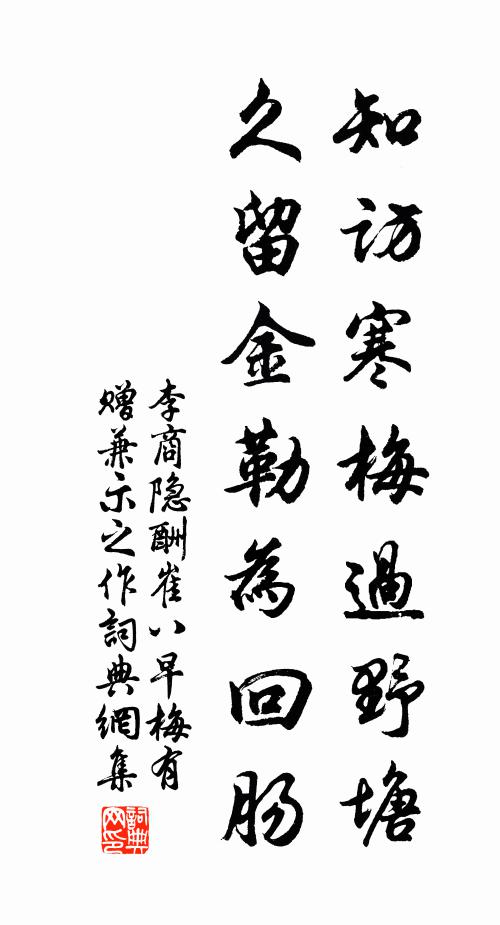 知訪寒梅過野塘
久留金勒為回肠
李商隐酬崔八早梅有
赠兼示之作詞典網集
詞典
网印